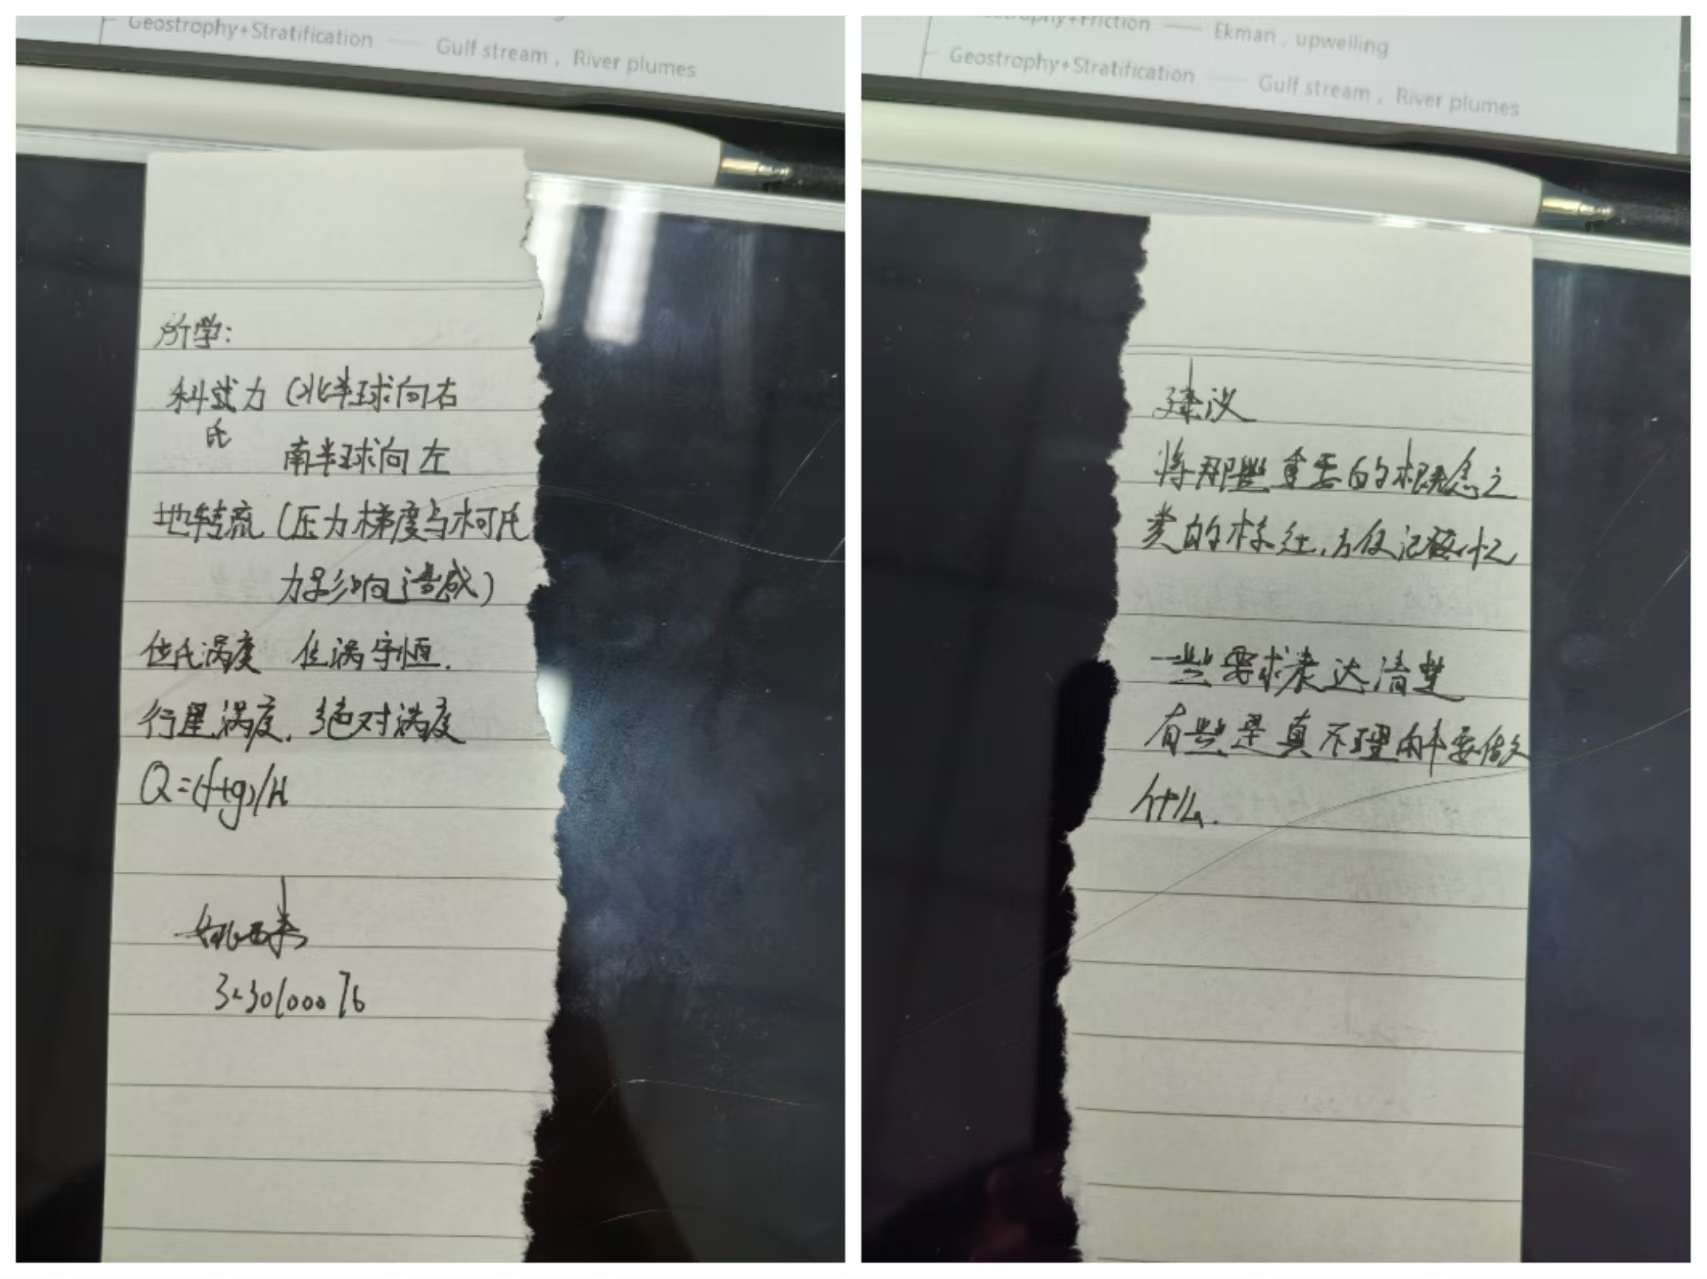 Geostrophy+Stratification —— Gulf stream , River plumes
所学:
科式力 (北半球向右
氏
南半球向左
地转流 (压力梯度与柯氏
力影响造成)
位氏涡度 位涡守恒.
行星涡度. 绝对涡度
Q=(f+g)/H
3230100076
Friction —— Ekman , upwelling
Geostrophy+Stratification —— Gulf stream , River plumes
建议
将那些重要的概念之
类的标红,方便记忆
一些要求表达清楚
有些是真不理解要做
什么.